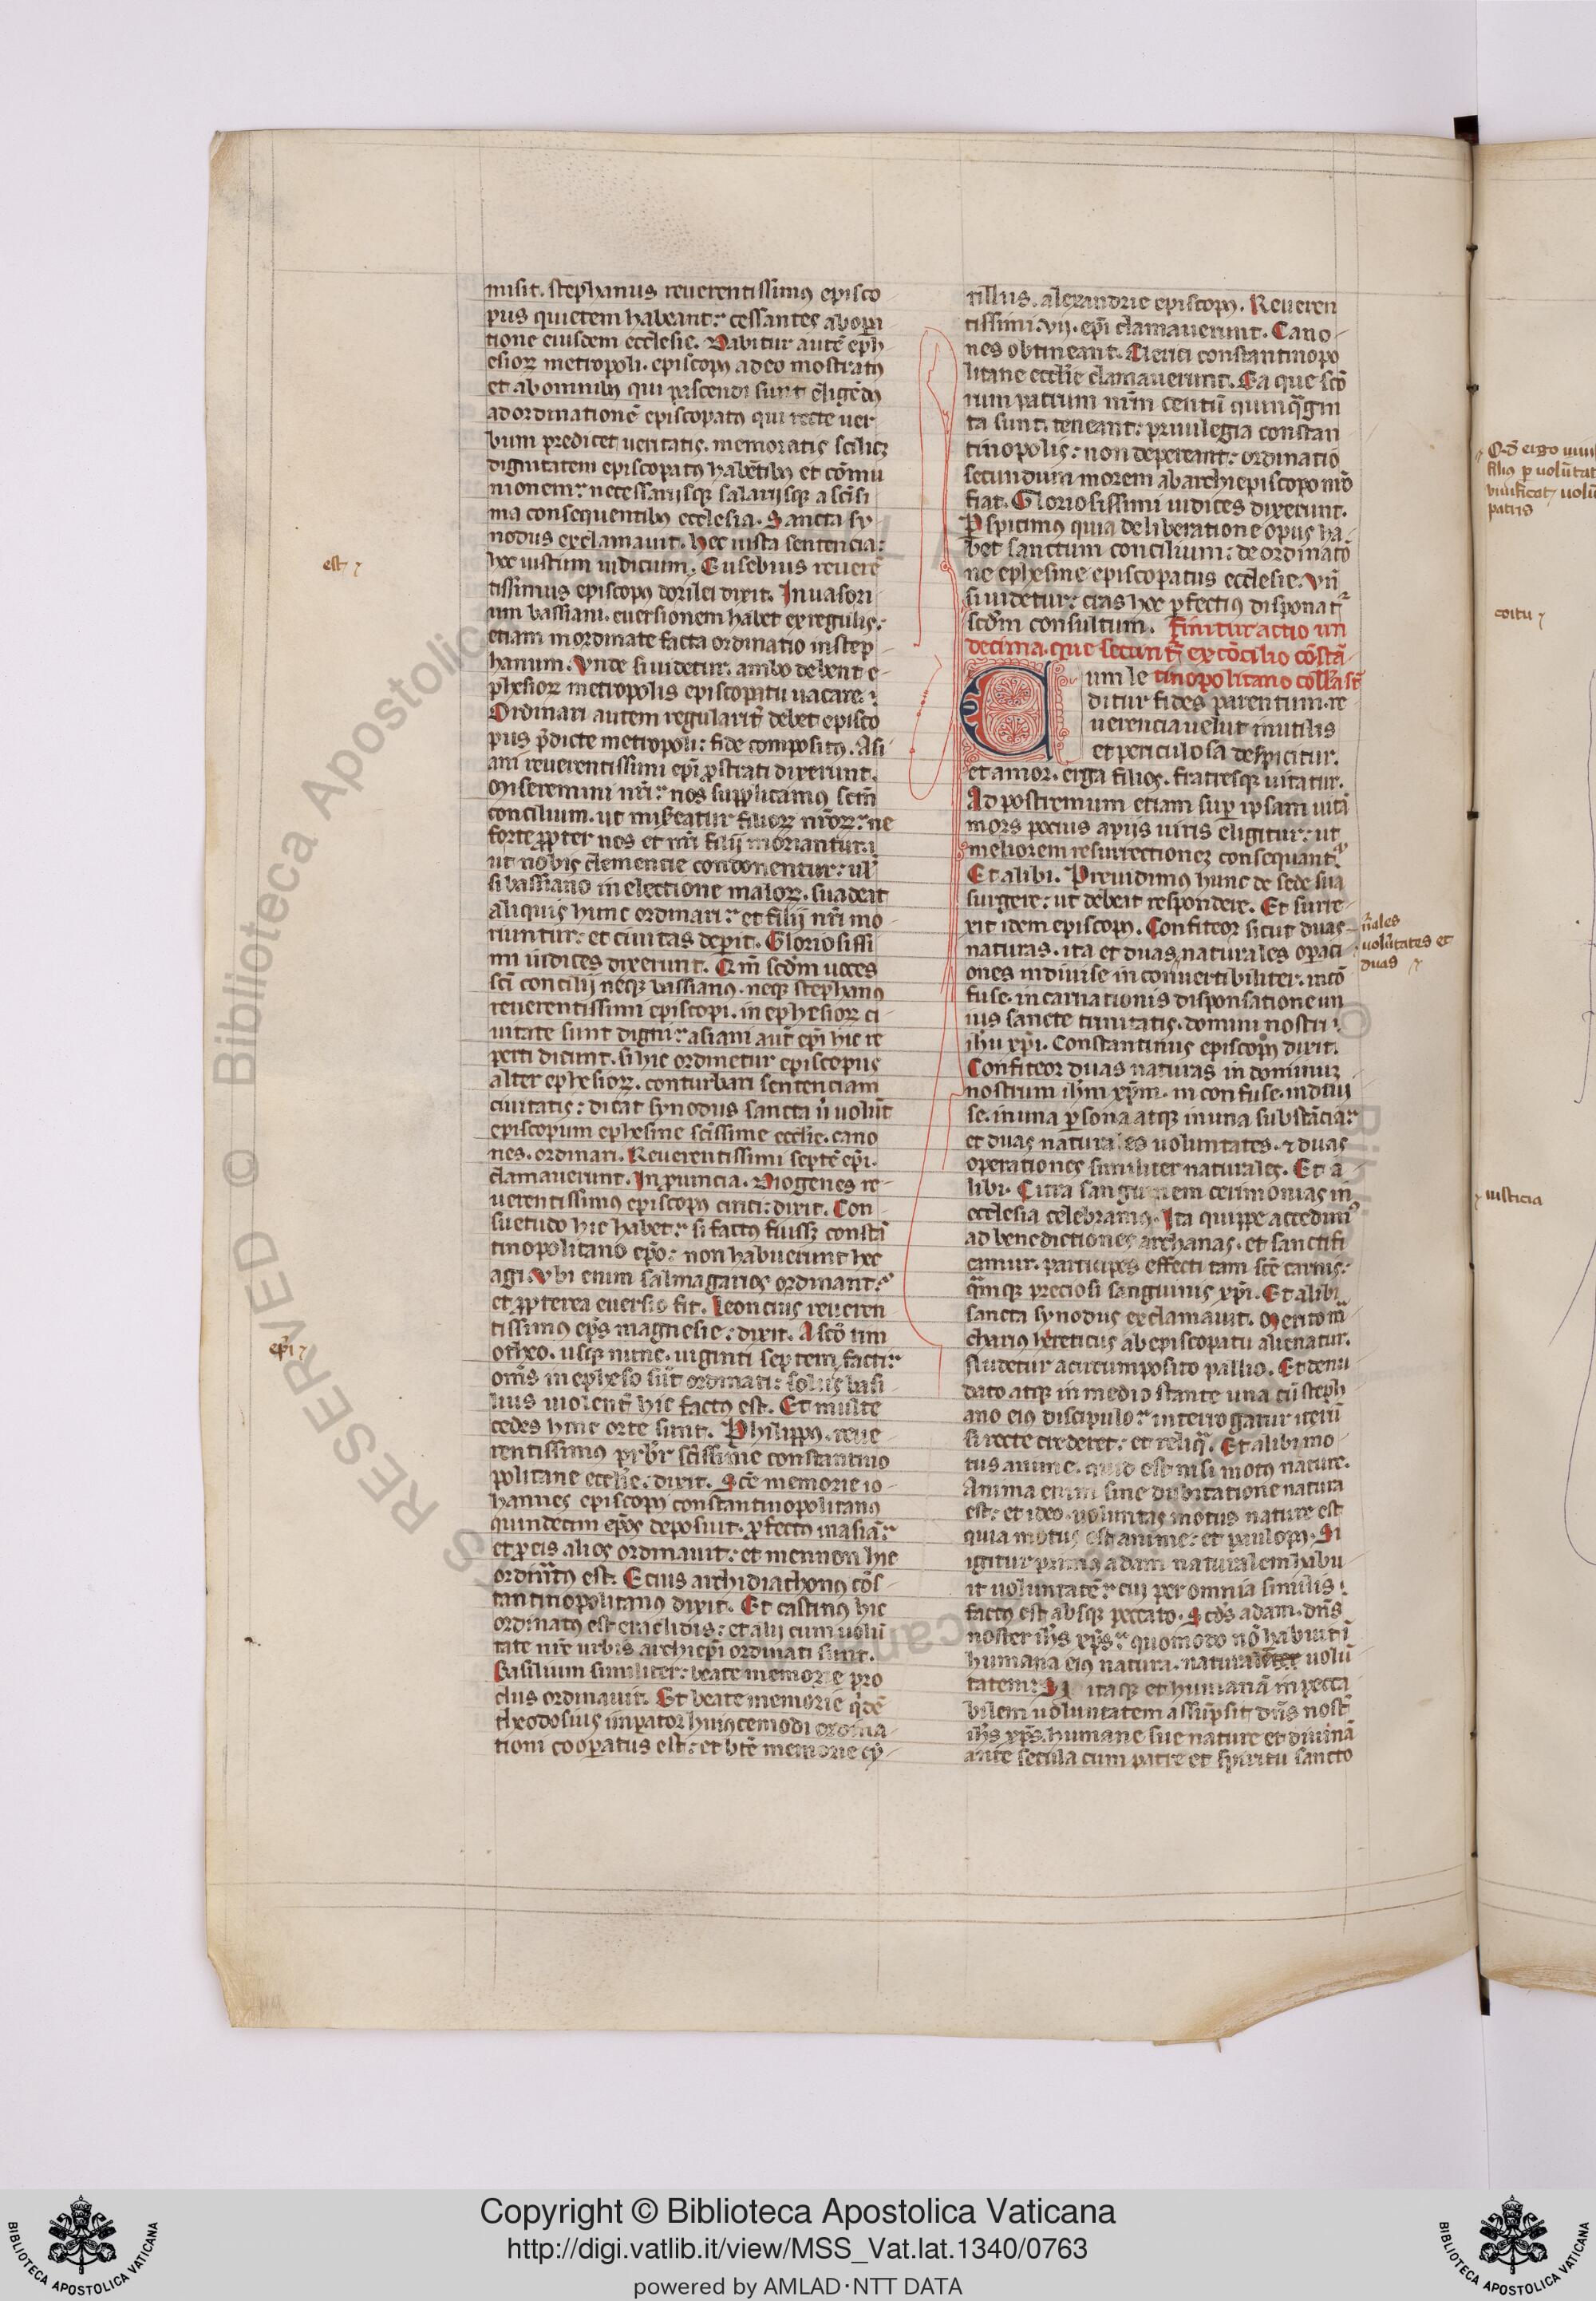 misit. stephanus reuerentissimꝰ episco
pus quietem habeant: cessantes ab oꝑa
tione eiusdem ecclesie. Dabitur autē eph
esioꝝ metropoli. episcopꝰ a deo mostratꝰ
et ab omnibꝰ qui pascendi sunt eligēdꝰ
ad ordinationē episcopatꝰ qui recte uer
bum predicet ueritatis. memoratis scilicꝫ
dignitatem episcopatꝰ habētibꝰ et cōmu
nionem: necessarijsqꝫ salarijsqꝫ a sc̄issi
ma consequentibꝰ ecclesia. Sancta sy
nodus exclamauit. Hec iusta sentencia:
hec iustum iudicium. Eusebius reuerē
tissimus episcopꝰ dorilei dixit. Inuasori
um bassiani. euersionem habet ex regulis:
etiam inordinate facta ordinatio in step
hanum. Vnde si uidetur. ambo debent e
phesioꝝ metropolis episcopatu uacare:
Ordinari autem regularit̄ debet episco
pus p̄dicte metropoli: fide compositꝰ. Asi
ani reuerentissimi ep̄i ꝓstrati dixerunt.
Miseremini nr̄i: nos supplicamꝰ sc̄m
concilium. ut misereatur filioꝝ nr̄oꝝ: ne
forte ꝓpter nos et nr̄i filij moriantur:
ut nobis clemencie condonentur: ul̄
si bassiano in electione maloꝝ. suadeat
aliquis hunc ordinari: et filij nr̄i mo
riuntur: et ciuitas deperit. Gloriosissi
mi iudices dixerunt. Qm̄ scdm uoces
sc̄i concilij neqꝫ bassianꝰ. neqꝫ stephanꝰ
reuerentissimi episcopi. in ephesioꝝ ci
uitate sunt digni: asiani aūt ep̄i hic re
perti dicunt. si hic ordinetur episcopus
alter ephesioꝝ. conturbari sentenciam
ciuitatis: dicat synodus sancta u̇ uolūt
episcopum ephesine sc̄issime eccl̄ie. cano
nes. ordinari. Reuerentissimi septē ep̄i.
clamauerunt. In ꝓuincia. Diogenes re
uerentissimꝰ episcopꝰ cizici: dixit. Con
suetudo hic habet: si factꝰ fuissꝫ constā
tinopolitano ep̄o: non habuerunt hec
agi. Vbi enim salmagarios ordinant:
et ꝓpterea euersio fit. Leoncius reueren
tissimus ep̄s magnesie: dixit. A sc̄o tim
otheo. usqꝫ nunc. uiginti septem facti:
om̄s in epheso sūt ordinati: solus basi
lius uiolent̄ hic factꝰ est. Et multe
cedes hinc orte sunt. Philippꝰ. reue
rentissimus pr̄br̄ sc̄issime constantino
politane eccl̄ie: dixit. Sc̄e memorie io
hannes episcopꝰ constantinopolitanꝰ
quindecim ep̄os deposuit. ꝓfectꝰ in asiā:
et ꝓ eis alios ordinauit: et mennon hic
ordinatꝰ est. Ecius archidiachonꝰ cōs
tantinopolitanꝰ dixit. Et castinꝰ hic
ordinatꝰ est eraclidis: et alij cum uolū
tate nr̄e urbis archiep̄i ordinati sunt.
Basilium similiter: beate memorie pro
clus ordinauit. Et beate memorie q̇dē
theodosius imꝑator huiꝰcemodi ordina
tioni cooꝑatus est: et bt̄e memorie cy
rillus. alexandrie episcopꝰ. Reueren
tissimi. vij. ep̄i clamauerunt. Cano
nes obtineant. Clerici constantinopo
litane eccl̄ie clamauerunt. Ea que sc̄o
rum patrum nūm centū quinq̄gin
ta sunt. teneant: priuilegia constan
tinopolis: non depereant: ordinatio
secundum morem ab archiepiscopo nr̄o
fiat. Gloriosissimi iudices dixerunt.
Ꝑspicimus quia deliberatione opus ha
bet sanctum concilium: de ordinatō
ne ephesine episcopatus ecclesie. Vn̄
si uidetur: cras hec ꝑfectiꝰ disponat̄
scdm consultum. Finitur actio un
decima. que secunt̄ ex cōcilio cōstā
um le tinopolitano coll̄a st̄
ditur fides parentum. re
uerencia uelut inutilis
et periculosa despicitur.
et amor. erga filios. fratresqꝫ uitatur.
Ad postremum etiam suꝑ ipsam uitā
mors pocius a pijs uiris eligitur: ut
meliorem resurrectionē consequant̄.
Et alibi. Preuidimꝰ hunc de sede sua
surgere: ut debeat respondere. Et surre
xit idem episcopꝰ. Confiteor sicut duas
naturas. ita et duas naturales oꝑaci
ones indiuise inconuertibiliter. incō
fuse. in carnationis disponsatione un
ius sancte trinitatis. domini nostri
ih̄u xp̄i. Constantinus episcopꝰ dixit.
Confiteor duas naturas in dominū
nostrum ih̄m xp̄m. inconfuse. indiui
se. in una ꝑsona atqꝫ in una substācia:
et duas naturales uoluntates. ⁊ duas
operationes similiter naturales. Et a
libi. Citra sanguinem cerimonias in
ecclesia celebramꝰ. Ita quippe accedimꝰ
ad benedictiones archanas. et sanctifi
camur. participes effecti tam sc̄e carnis:
q̄mqꝫ preciosi sanguinis xp̄i. Et alibi
sancta synodus exclamauit. Merito ma
charius hereticus ab episcopatu alienatur.
Nudetur a circumposito pallio. Et denu
dato atqꝫ in medio stante una cū steph
ano eiꝰ discipulo: interrogatur iterū
si recte crederet: et reliq̄. Et alibi mo
tus anime. quid est nisi motꝰ nature.
Anima enim sine dubitatione natura
est: et ideo. uoluntas motus nature est
quia motus est anime: et paulopꝰ. Si
igitur primꝰ adam naturalem habu
it uoluntatē: cui per omnia similis
factꝰ est absqꝫ peccato. Scd̄s adam. dn̄s
noster ih̄s xp̄s: quomodo nō habuit ī
humana eiꝰ natura. naturalem uolū
tatem: itaqꝫ et humanā impecca
bilem uoluntatem assūpsit dn̄s nost̄
ih̄s xp̄s. humane sue nature et diuinā
ante secula cum patre et spiritu sancto
est
ep̄i
n̄ales
uolūtates et
duas
Qd̄ ergo uiui
filiꝰ ꝑ uolūtat
uiuificat uolū
patris
coitu
iusticia
© Biblioteca Apostolica Vaticana
ALL RIGHTS RESERVED
Copyright © Biblioteca Apostolica Vaticana
http://digi.vatlib.it/view/MSS_Vat.lat.1340/0763
powered by AMLAD·NTT DATA
BIBLIOTECA APOSTOLICA VATICANA
BIBLIOTECA APOSTOLICA VATICANA